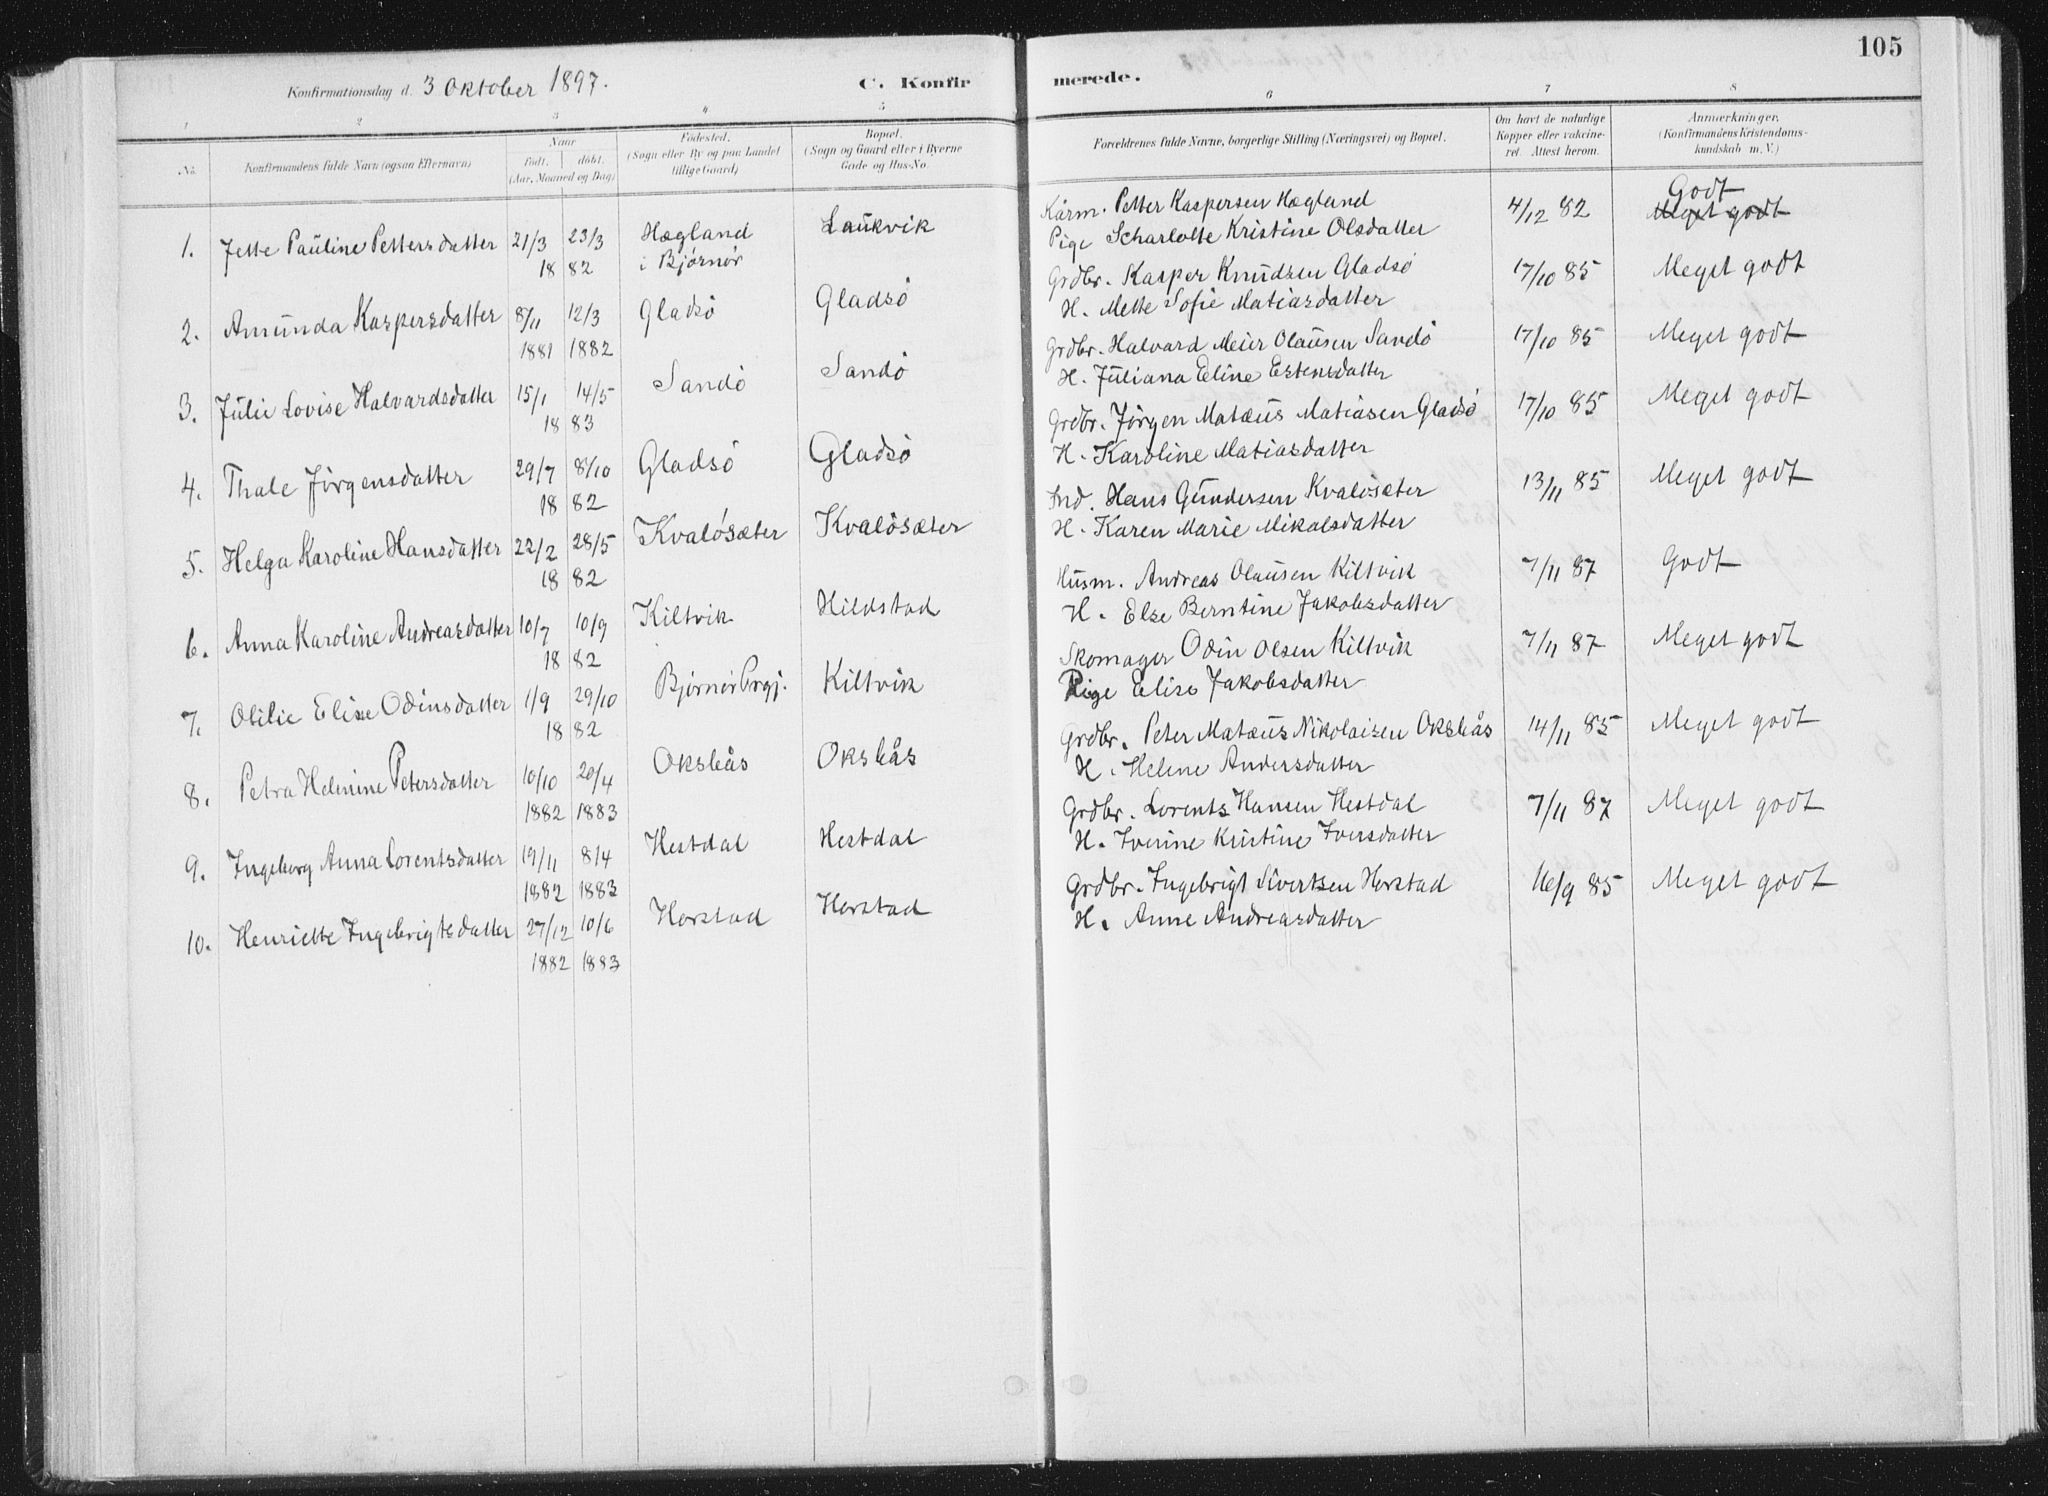 105
Konfirmationsdag d. 3 Oktober 1897.
C. Konfirmerede.
1 2 3 4 5 6 7 8
No.
Konfirmandens fulde Navn (ogsaa Efternavn)
Naar
født. døbt.
(Aar, Maaned og Dag)
Fødested.
(Sogn eller By og paa Landet
tillige Gaard)
Bopæl.
(Sogn og Gaard eller i Byerne
Gade og Hus-No.
Forældrenes fulde Navne, borgerlige Stilling (Næringsvei) og Bopæl.
Om havt de naturlige
Kopper eller vakcine-
ret. Attest herom.
Anmærkninger.
(Konfirmandens Kristendoms-
kundskab m. V.)
1. Jette Pauline Pettersdatter 21/3 23/3 Hægland Laukvik Kårm. Petter Kaspersen Hægland 4/12 82 Godt
18 82 i Bjørnør Pige Scharlotte Kristine Olsdatter Meget godt
2. Amunda Kaspersdatter 8/11 12/3 Gladsø Gladsø Grdbr. Kasper Knudsen Gladsø 17/10 85 Meget godt
1881 1882 H. Mette Sofie Matiasdatter
3. Julie Lovise Halvardsdatter 15/1 14/5 Sandø Sandø Grdbr. Halvard Meier Olausen Sandø 17/10 85 Meget godt
18 83 H. Juliana Eline Estensdatter
4. Thale Jørgensdatter 29/7 8/10 Gladsø Gladsø Grdbr. Jørgen Matæus Matiasen Gladsø 17/10 85 Meget godt
18 82 H. Karoline Matiasdatter
5. Helga Karoline Hansdatter 22/2 28/5 Kvaløsæter Kvaløsæter Ind. Hans Gundersen Kvaløsæter 13/11 85 Meget godt
18 82 H. Karen Marie Mikalsdatter
6. Anna Karoline Andreasdatter 10/7 10/9 Kiltvik Hildstad Husm. Andreas Olausen Kiltvik 7/11 87 Godt
18 82 H. Else Berntine Jakobsdatter
7. Otilie Elise Odinsdatter 1/9 29/10 Bjørnør Prgj. Kiltvik Skomager Odin Olsen Kiltvik 7/11 87 Meget godt
18 82 Pige Elise Jakobsdatter
8. Petra Helenine Petersdatter 10/10 20/4 Oksbås Oksbås Grdbr. Peter Matæus Nikolaisen Oksbås 14/11 85 Meget godt
1882 1883 H. Helene Andersdatter
9. Ingeborg Anna Lorentsdatter 19/11 8/4 Hestdal Hestdal Grdbr. Lorents Hansen Hestdal 7/11 87 Meget godt
1882 1883 H. Iverine Kristine Iversdatter
10. Henriette Ingebrigtsdatter 27/12 10/6 Horstad Horstad Grdbr. Ingebrigt Sivertsen Horstad 16/9 85 Meget godt
1882 1883 H. Anne Andreasdatter